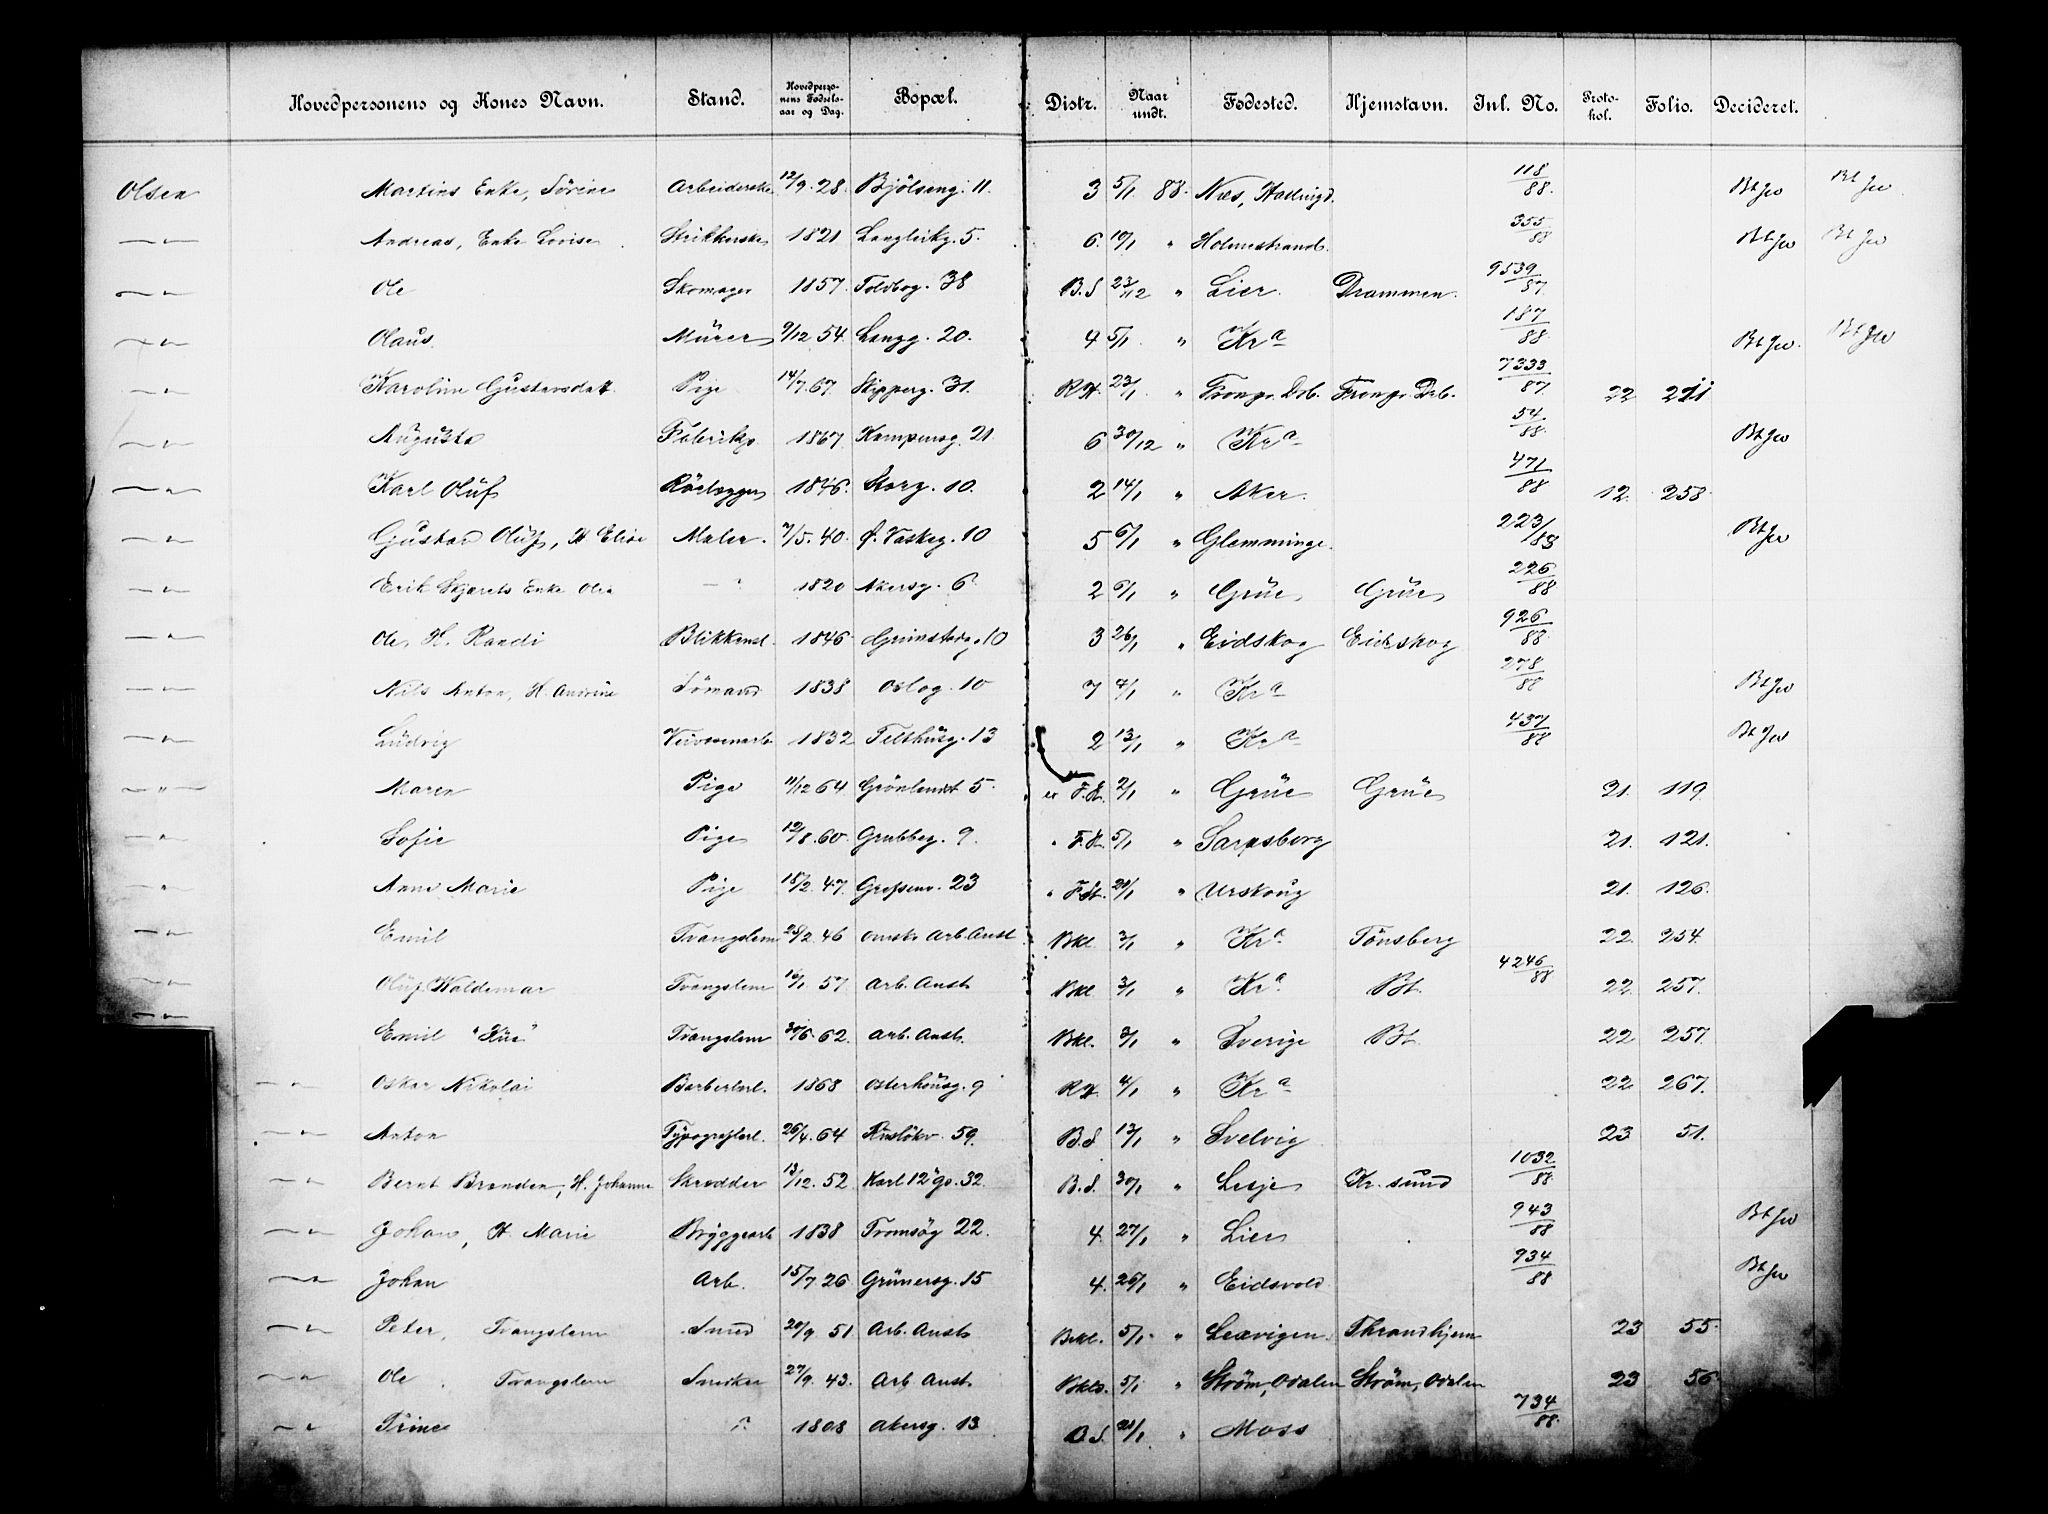 Hovedpersonens og Kones Navn. Stand. Hovedpersonens Fødsels-aar og Dag. Bopæl. Distr. Naar undt. Fødested. Hjemstavn. Inl. No. Protokol. Folio. Decideret.
Olsen Martins Enke, Sörine Arbeiderske 12/9. 28. Bjölseng. 11. 3 5/1 88. Næs, Hallingd. 118/88. Bt Jw Bt Jw
—"— Andreas, Enke Lovise Strikkerske 1821 Langlikg. 5. 6. 10/1 " Holmestrand. 355/88 Bt Jw Bt Jw
—"— Ole Skomager 1857. Toldbog. 38 B.S 23/12 " Lier. Drammen. 9539/87.
—"— Olaus Mürer 9/12 54. Langg. 20. 4 5/1 " Kra 187/88. Bt Jw. Bt Jw
—"— Karoline Gustavsdatt. Pige 14/7. 67. Skipperg. 31. RK. 23/1 " Frongr. Drb. Frongr. Drb. 7333/87. 22 211
—"— Augusta Fabrikp. 1867 Kampensg. 21. 6 30/12 " Kra 54/88. Bt Jw
—"— Karl Olüf Rörlægger 1846. Storg. 10. 2 14/1 " Aker. 471/88 12. 258.
—"— Gustav Olüf, H Elise Maler. 7/5. 40. Ø. Vaskeg. 10 5 6/1 " Glemminge. 223/88 Bt Jw
—"— Erik Skjærets Enke Olea —"— 1820 Akersg. 6. 2 6/1 " Grüe Grüe 226/88
—"— Ole, H. Randi Blikkensl. 1846. Grimstadg. 10 3 26/1 " Eidskog Eidskog 926/88
—"— Nils Anton, H. Andrine Sömand 1838 Oslog. 10 7 7/1 " Kra 278/88 Bt Jw
—"— Ludvig Veivæsenarb. 1832 Telthüsg. 13 2 13/1 " Kra 437/88 Bt Jw
—"— Maren Pige 11/12 64 Grönlandst 5. F.K. 2/1 " Grüe Grüe 21. 119.
—"— Sofie Pige 12/8. 60. Grubbeg. 9. " F.K. 5/1 " Sarpsborg 21. 121.
—"— Anne Marie Pige 18/2. 47. Grefsenv. 23 " F.K. 20/1 " Urskoug 21. 126.
—"— Emil Tvangslem 28/2. 46 Omsk. Arb. Anst Bkl. 3/1 " Kra. Tönsberg 22. 254.
—"— Olüf Waldemar Tvangslem 10/1 57. Arb. Anst Bkl. 3/1 " Kra. Bt. 4246/88 22. 257.
—"— Emil "Küe" Tvangslem 30/6. 62. Arb. Anst. Bkl. 3/1 " Sverige Bt 22 257.
—"— Oskar Nikolai Barberlærl. 1868 Osterhausg. 9 RK. 4/1 " Kra 22. 267.
—"— Anton Typograflærl. 26/4. 64 Ruslökv. 59. B.S 13/1 " Svelvig 23 51.
—"— Bernt Brenden, H. Johanne Skrædder 13/12. 52. Karl 12's g. 32. B.S. 30/1 " Lesje Kr. sund 1032/88.
—"— Johan, H. Marie Bryggearb 1838 Tromsög 22. 4. 27/1 " Lier 943/88 Bt Jw
—"— Johan Arb. 15/7 26 Grünersg. 15 4. 26/1 " Eidsvold 934/88 Bt Jw
—"— Peter, Tvangslem Smed 20/9 51 Arb. Anst. Bkl. 5/1 " Lexvigen. Throndhjem 23 55.
—"— Ole Tvangslem Snedker 27/9. 43. Arb Anst. Bkl. 5/1 " Ström, Odalen Ström, Odalen 23 56
—"— Trine " 1808 Akersg. 13 B.S. 21/1 " Moss 734/88.